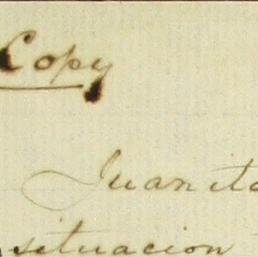 Copy
Juanita
situacion